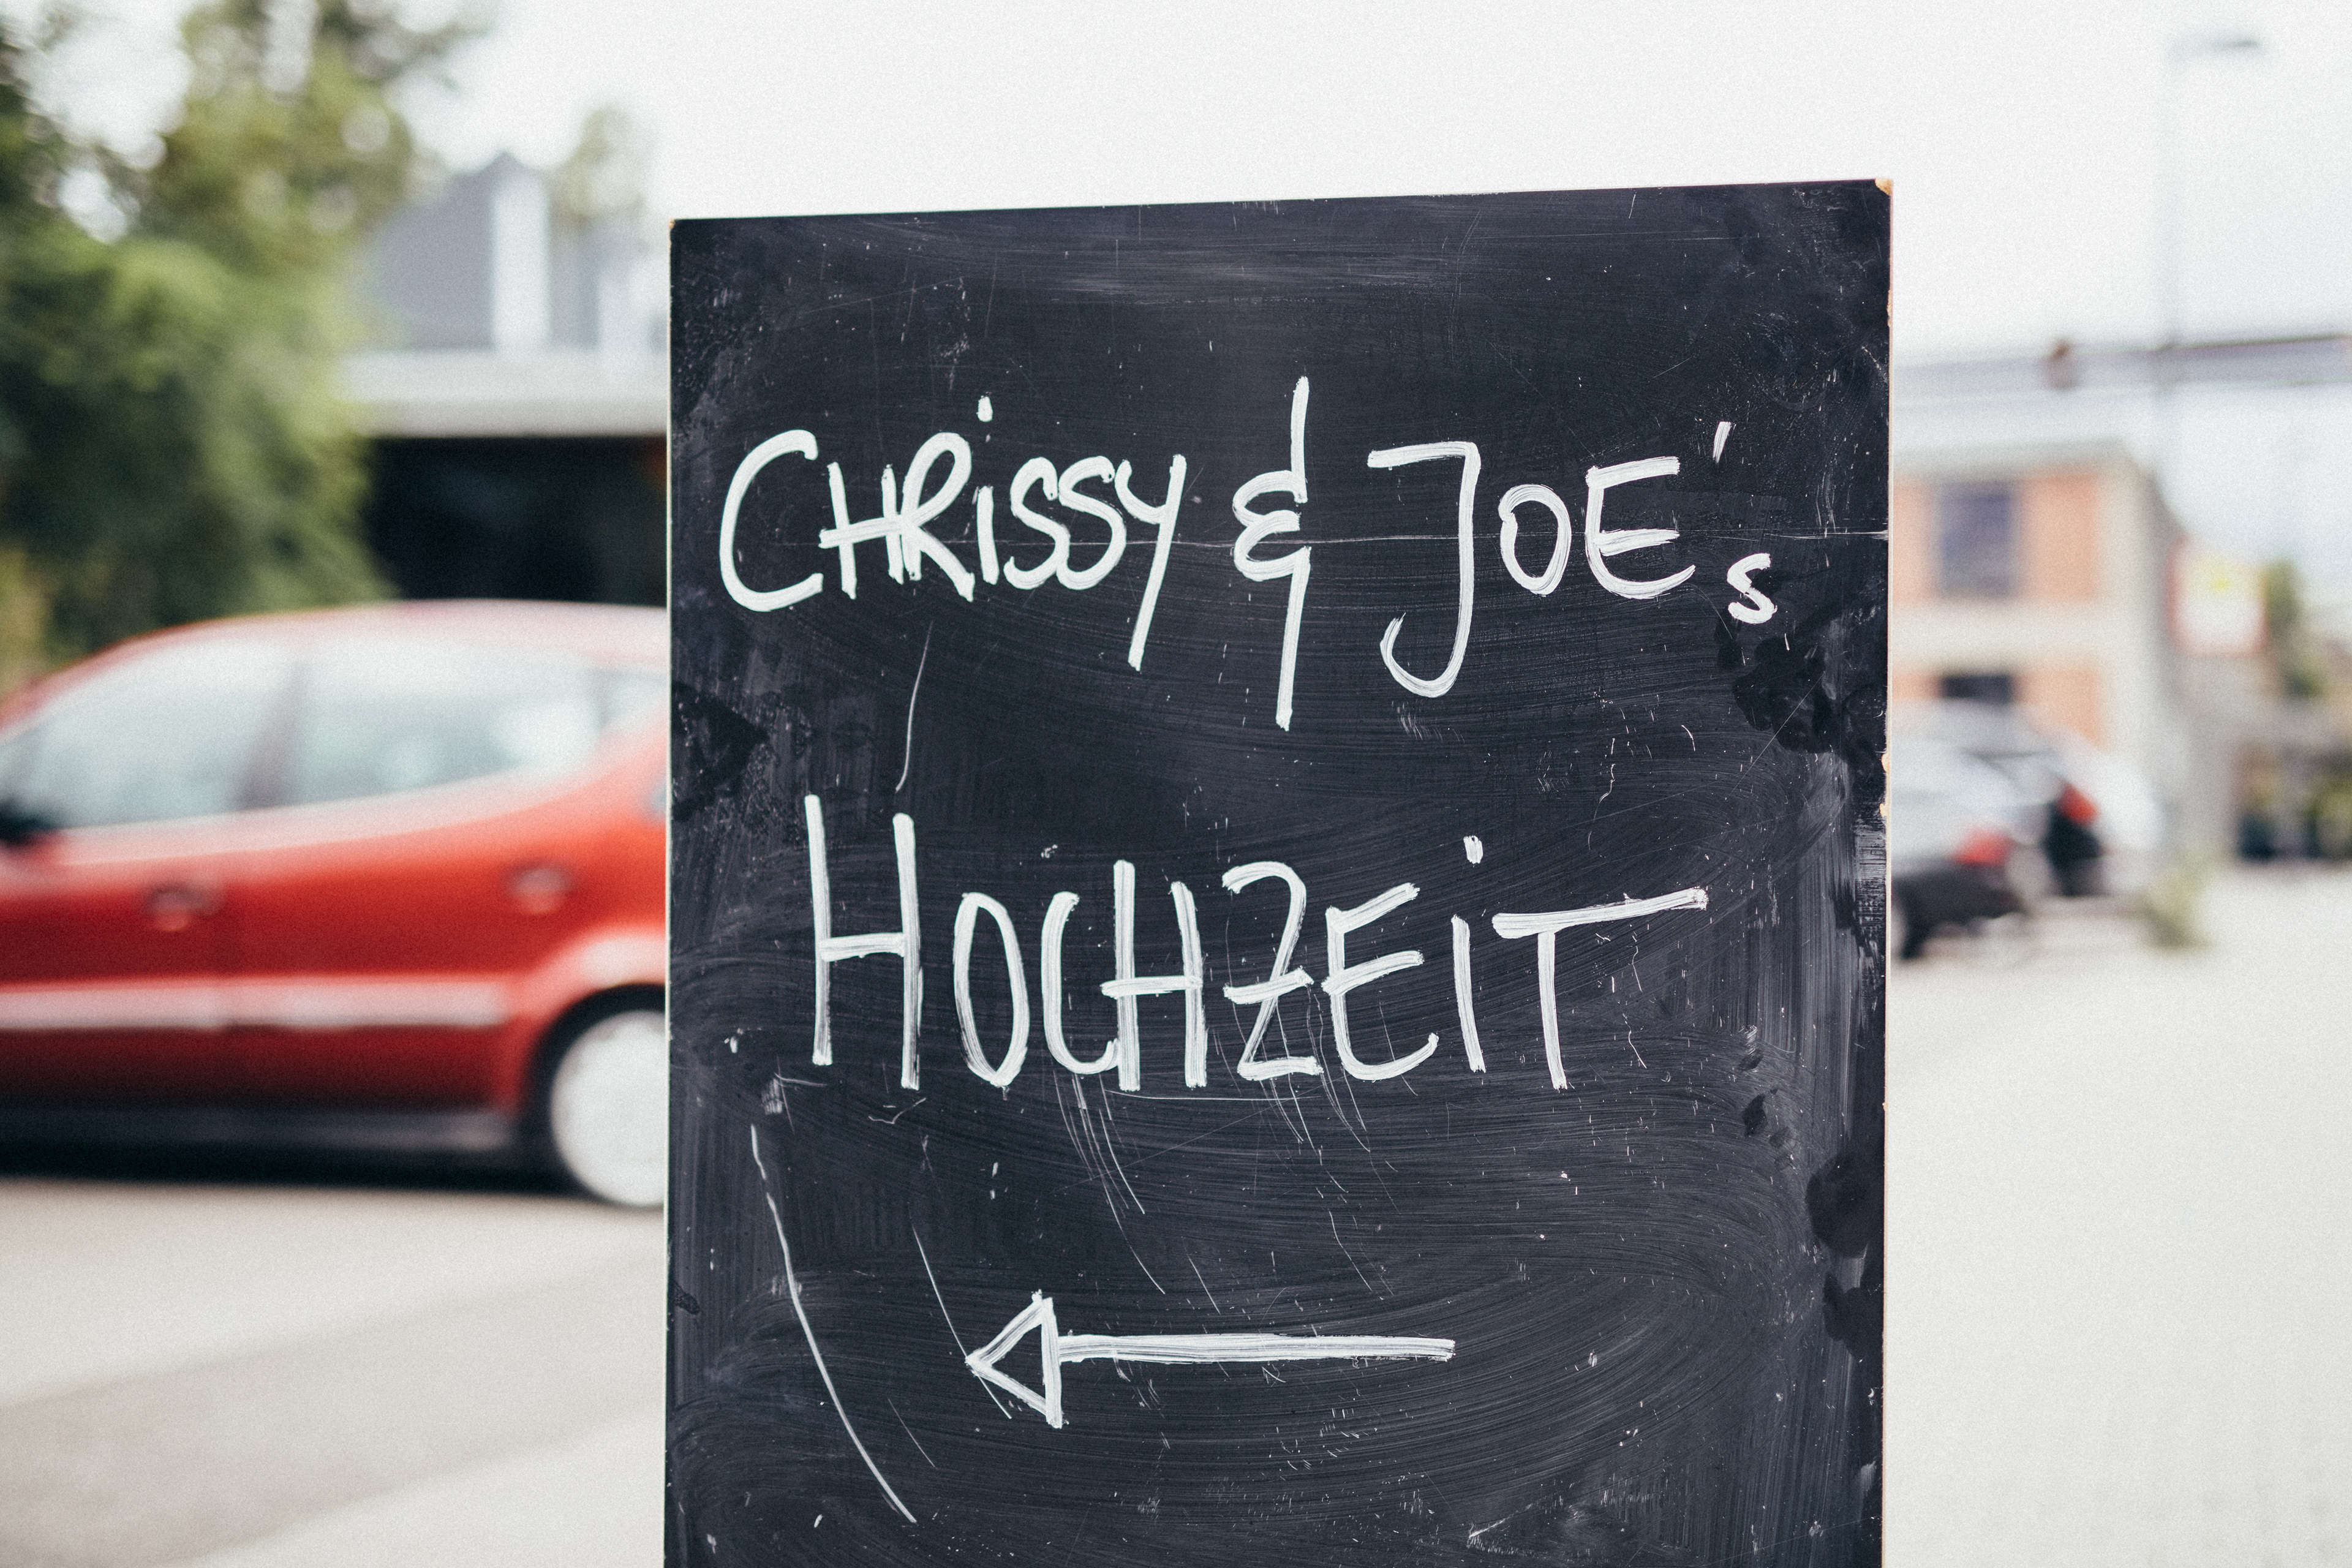 CHRiSSY & JOE's
HOCHZEiT